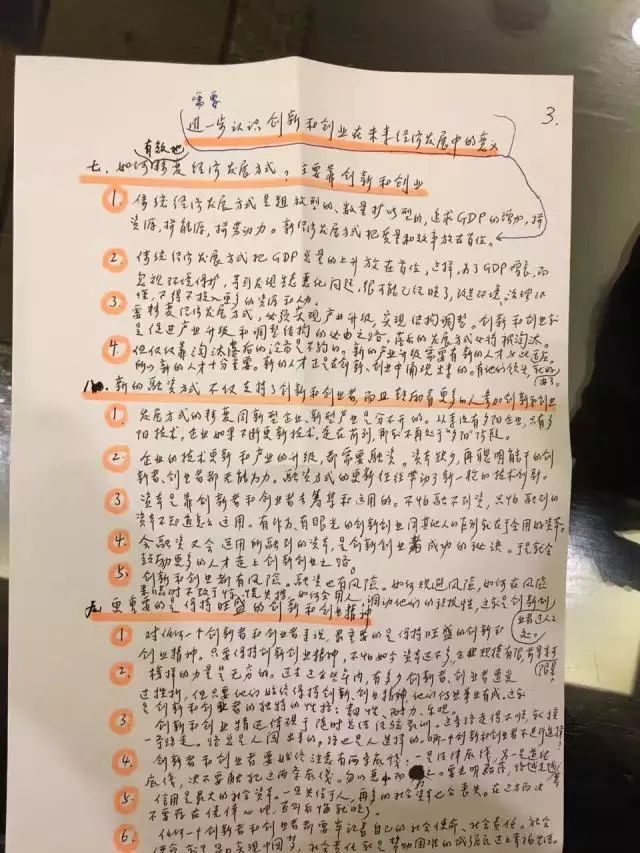 需要
3.
进一步认识创新和创业在未来经济发展中的意义
有效地
七、如何转变经济发展方式?主要靠创新和创业
1. 传统经济发展方式是粗放型的、数量扩张型的,追求GDP的增加,拼
资源,拼能源,拼劳动力。新经济发展方式把质量和效率放在首位。
2. 传统经济发展方式把GDP总量的上升放在首位,这样,为了GDP增长,而
忽视环境保护,等到发现生态恶化问题,很可能已经晚了,改进环境、治理环
境,不得不投入更多的资源和人力。
3 要转变经济发展方式,必须实现产业升级,实现结构调整。创新和创业就
是促进产业升级和调整结构的必由之路。落后的发展方式必将被淘汰。
4. 但仅仅靠淘汰落后的活动是不够的。新的产业升级需要有新的人才与此适应。
所以新的人才十分重要。新的人才正是在创新、创业中涌现出来的。有他们领先,
八、新的融资方式不仅支持了创新和创业者,而且鼓励着更多的人参加创新和创业
1. 发展方式的转变同新型企业、新型产业是分不开的。从来没有夕阳企业,只有夕
阳技术,企业如果不断更新技术,走在前列,那就不再处于"夕阳"阶段。
2. 企业的技术更新和产业的升级,都需要融资。资本缺少,再聪明能干的创
新者、创业者都无能为力。融资方式的更新往往带动了新一轮的技术创新。
3 资本是靠创新者和创业者去筹集和运用的。不怕融不到资,只怕融到的
资本不知道怎么运用。有作为、有眼光的创新创业同其他人的区别就在于会用好资本。
4. 会融资又会运用所融到的资本,是创新创业者成功的秘诀。于是就会
鼓励更多的人走上创新创业之路。
5. 创新和创业都有风险。融资也有风险。如何规避风险,如何在风险
来临时不致于惊慌失措,如何会用人,调动他们的积极性,这就是创新创
业者过人之
处。
九、更重要的是保持旺盛的创新和创业精神
1 对任何一个创新者和创业者来说,最重要的是保持旺盛的创新和
创业精神。只要保持创新创业精神,不怕如今资本还不多,企业规模有限,
2. 榜样的力量是无穷的。过去这些年内,有多少创新者、创业者遭受
过挫折,但只要他们始终保持创新、创业精神,他们仍然事业有成。这就
是创新和创业者的独特的性格:韧性、耐力、乐观。
3 创新和创业精神还体现于随时总结经验教训。这条路走得不顺,就换
一条路走。路总是人闯出来的,路也是人选择的。哪一个创新和创业者不是这样选择?
4. 创新者和创业者要始终注意有两条底线:一是法律底线,另一是道德
底线,决不要触犯这两条底线。
5 信用是最大的社会资本。一旦失信于人,再多的社会资本也会丧失。在这方面决
不要存在侥幸心理,否则后悔就晚了。
6. 任何一个创新者和创业者都要牢记着自己的社会使命、社会责任。社会
使命就是实现中国梦,社会责任就是帮助困难的